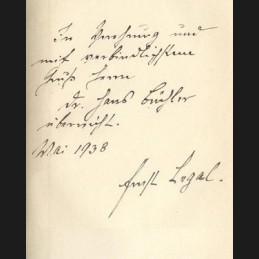 In Verehrung und
mit verbindlichstem
Gruß Herrn
Dr. Hans Büchler
überreicht.
Mai 1938
Ernst Legal.